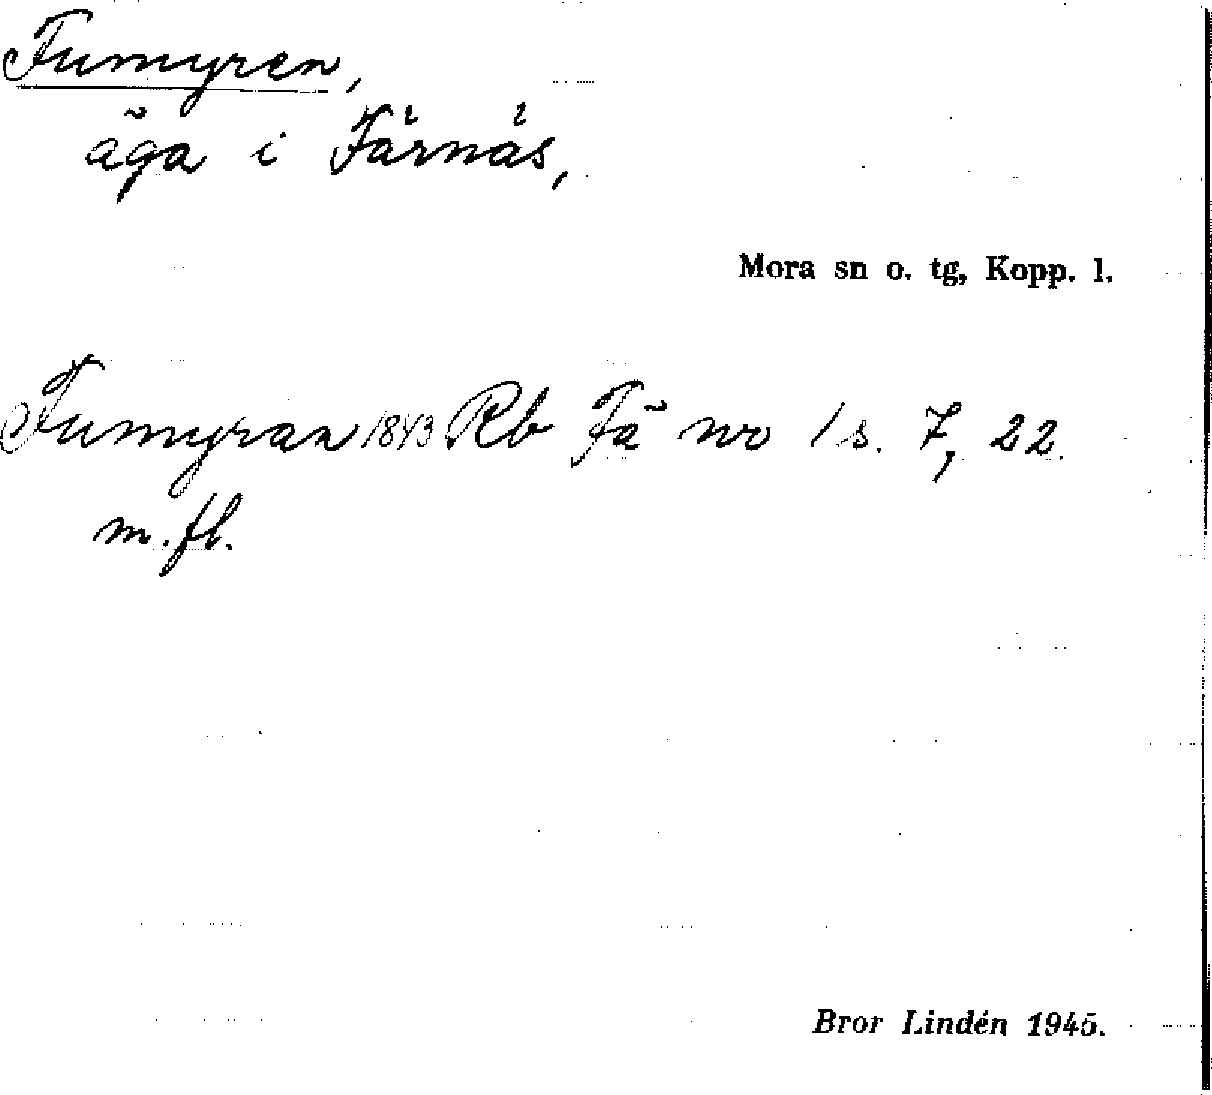 Fumyren,
äga i Färnäs,
Mora sn o. tg, Kopp. l.
Fumyran 1843 Rb Fä nr 1 s. 7, 22
m.fl.
Bror Lindén 1945.